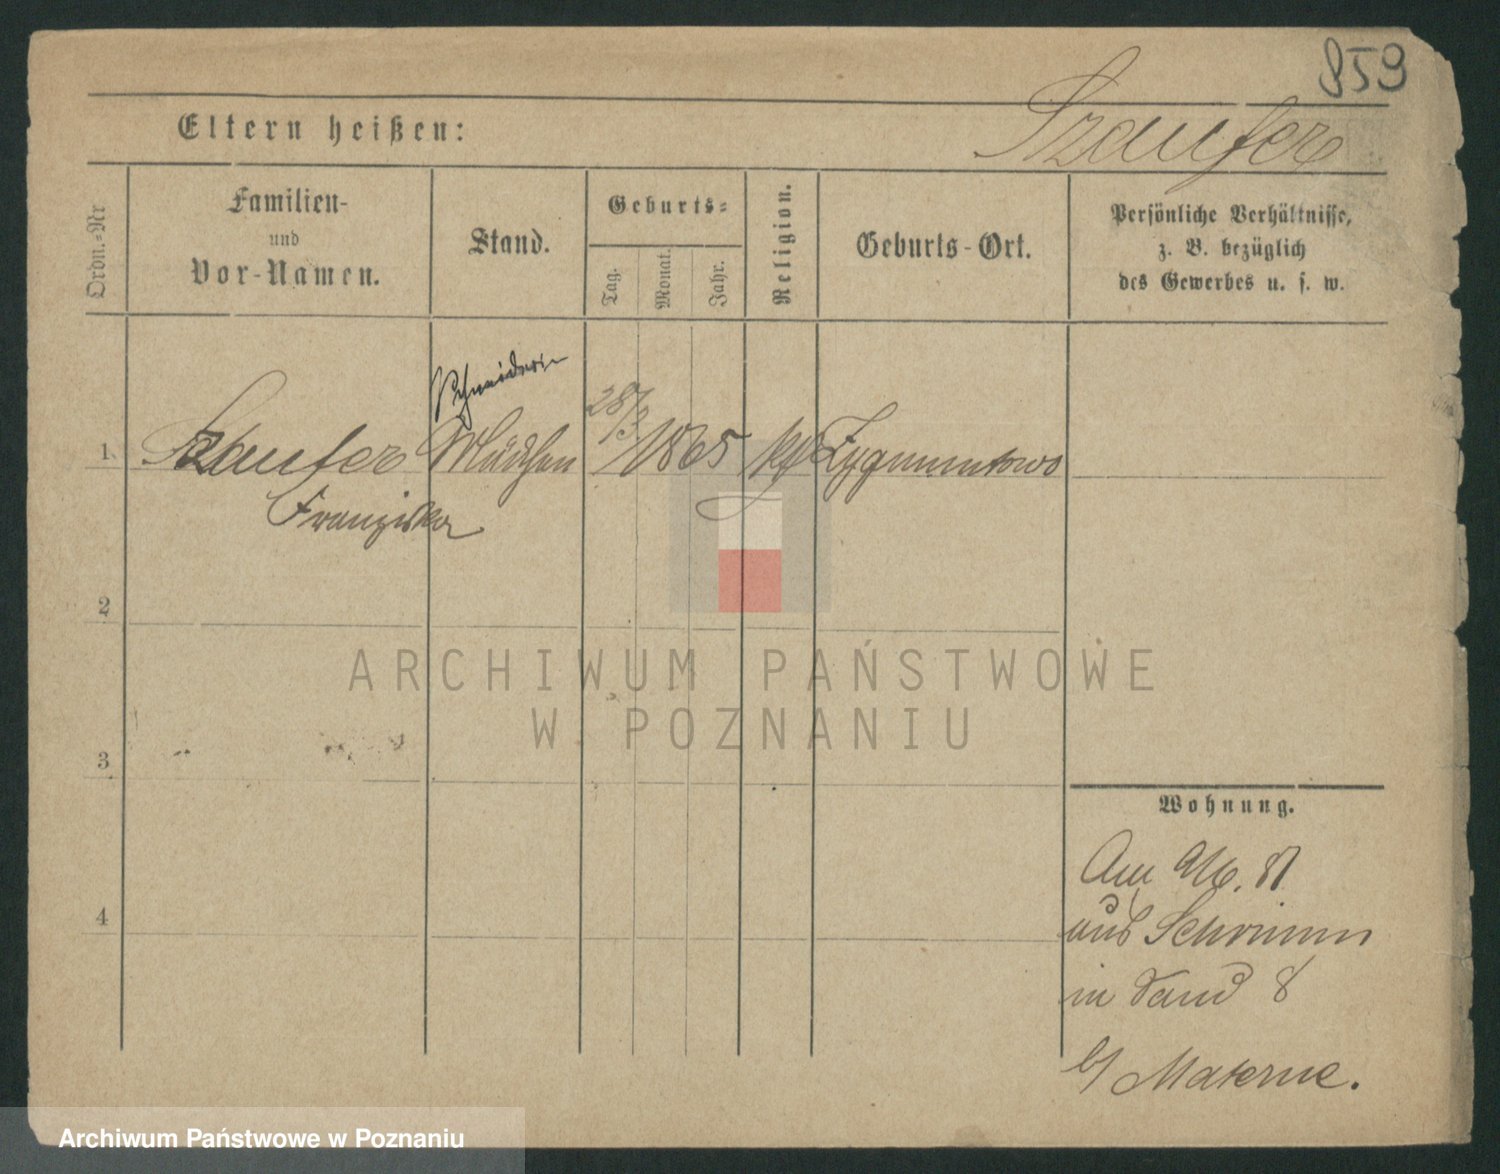 859
Szaufer
Eltern heißen:
Ordn.-Nr
Familien-
und
Vor-Namen.
Stand.
Geburts-
Tag.
Monat.
Jahr.
Religion.
Geburts-Ort.
Persönliche Verhältnisse,
z. B. bezüglich
des Gewerbes u. s. w.
Schneiderin
1. Szaufer Mädchen 28/3 1865 kf Zygmuntowo
Franziska
2
3
4
ARCHIWUM PAŃSTWOWE
W POZNANIU
Wohnung.
aus Schrimm
in Sand 8
b/ Materne.
Archiwum Państwowe w Poznaniu